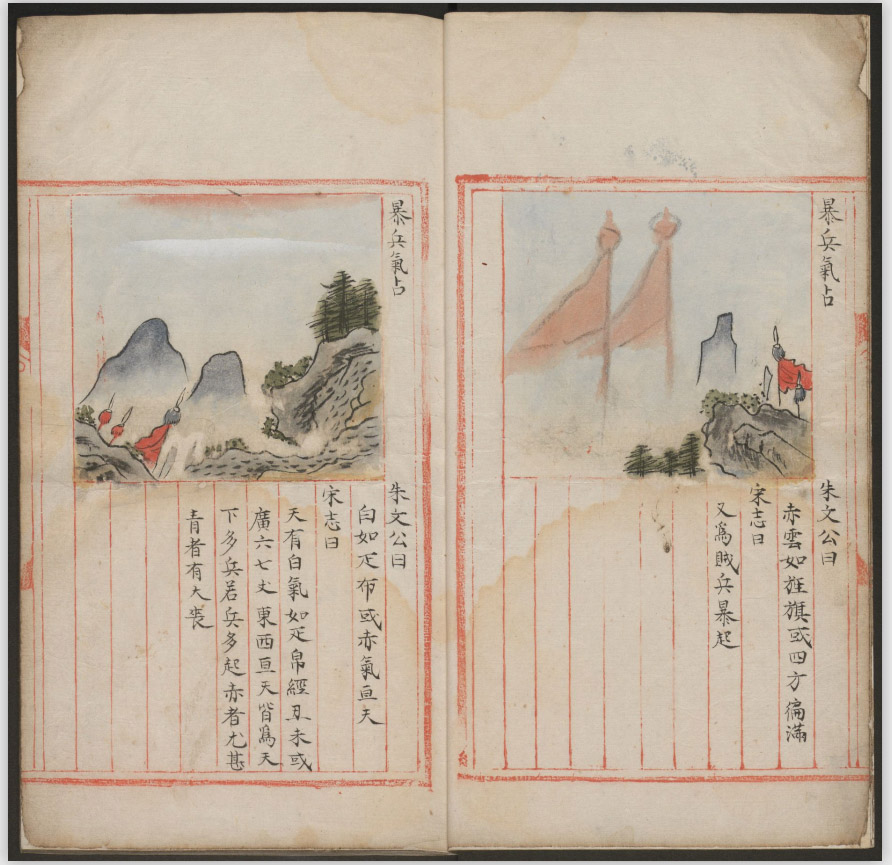 暴兵氣占
朱文公曰
赤雲如旌旗或四方徧滿
宋志曰
又為賊兵暴起
暴兵氣占
朱文公曰
白如疋布或赤氣亘天
宋志曰
天有白氣如疋帛經丑未或
廣六七丈東西亘天皆爲天
下多兵若兵多起赤者尤甚
青者有大喪